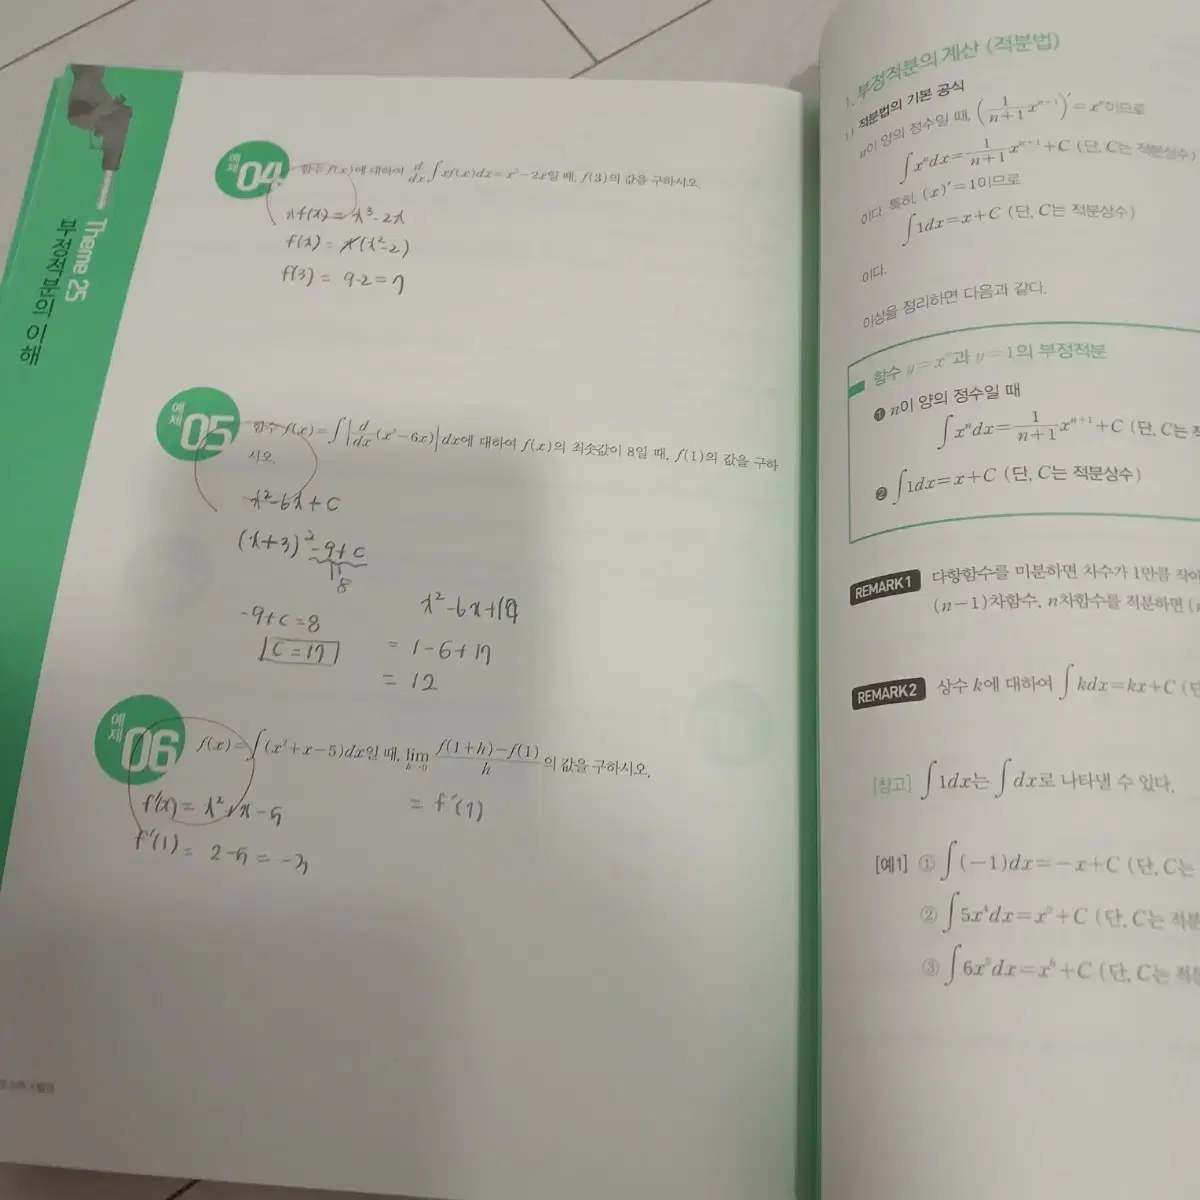 Theme 25
부정적분의 이해
예제 04 함수 f(x)에 대하여 d/dx ∫xf(x)dx=x³-2x일 때, f(3)의 값을 구하시오.
xf(x) = x³-2x
f(x) = x(x²-2)
f(3) = 9-2=7
예제 05 함수 f(x)=∫[d/dx(x²-6x)]dx에 대하여 f(x)의 최솟값이 8일 때, f(1)의 값을 구하
시오.
x²-6x+C
(x+3)²-9+C
8
-9+C=8
C=17
x²-6x+17
= 1-6+17
= 12
예제 06 f(x)=∫(x²+x-5)dx일 때, lim h→0 f(1+h)-f(1)/h 의 값을 구하시오.
f'(x) = x²+x-5
= f'(1)
f'(1) = 2-5 = -3
1. 부정적분의 계산 (적분법)
1) 적분법의 기본 공식
n이 양의 정수일 때, (1/n+1 xⁿ⁺¹)'=xⁿ이므로
∫xⁿdx=1/n+1 xⁿ⁺¹+C (단, C는 적분상수)
이다. 특히, (x)'=1이므로
∫1dx=x+C (단, C는 적분상수)
이다.
이상을 정리하면 다음과 같다.
함수 y=xⁿ과 y=1의 부정적분
❶ n이 양의 정수일 때
∫xⁿdx=1/n+1 xⁿ⁺¹+C (단, C는 적
❷ ∫1dx=x+C (단, C는 적분상수)
REMARK1 다항함수를 미분하면 차수가 1만큼 작아
(n-1)차함수, n차함수를 적분하면 (n
REMARK2 상수 k에 대하여 ∫kdx=kx+C (단
[참고] ∫1dx는 ∫dx로 나타낼 수 있다.
[예1] ① ∫(-1)dx=-x+C (단, C는
② ∫5x⁴dx=x⁵+C (단, C는 적분
③ ∫6x⁵dx=x⁶+C (단, C는 적분